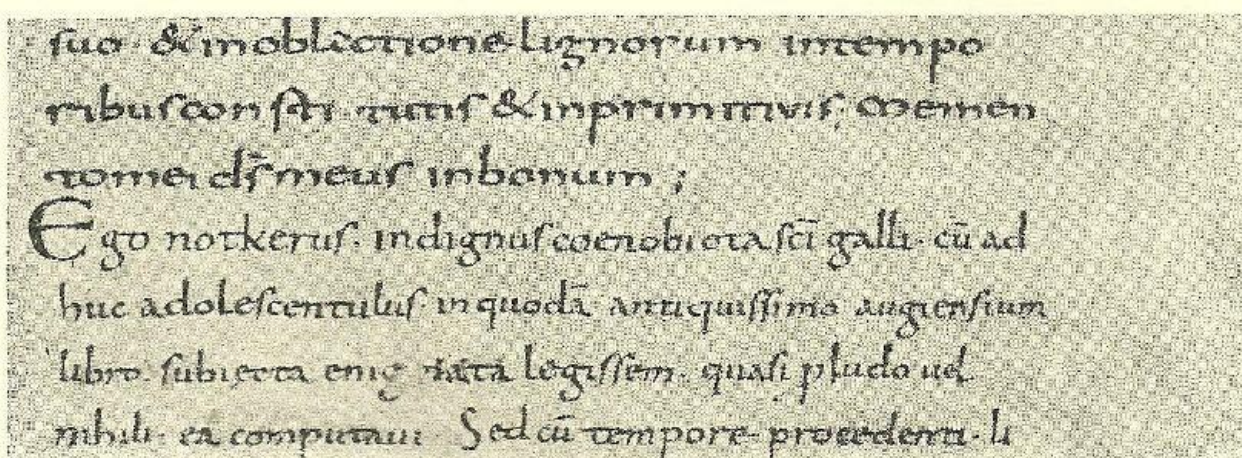 suo · & in oblatione lignorum in tempo
ribus constitutis & in primitivis; Memen
to mei ds̄ meus in bonum ;
Ego notkerus · indignus coenobiota sc̄i galli · cū ad
huc adolescentulus in quodā antiquissimo augiensium
libro · subiecta enigmata legissem · quasi p ludo uel
nihili · ea computaui Sed cū tempore procedenti · li